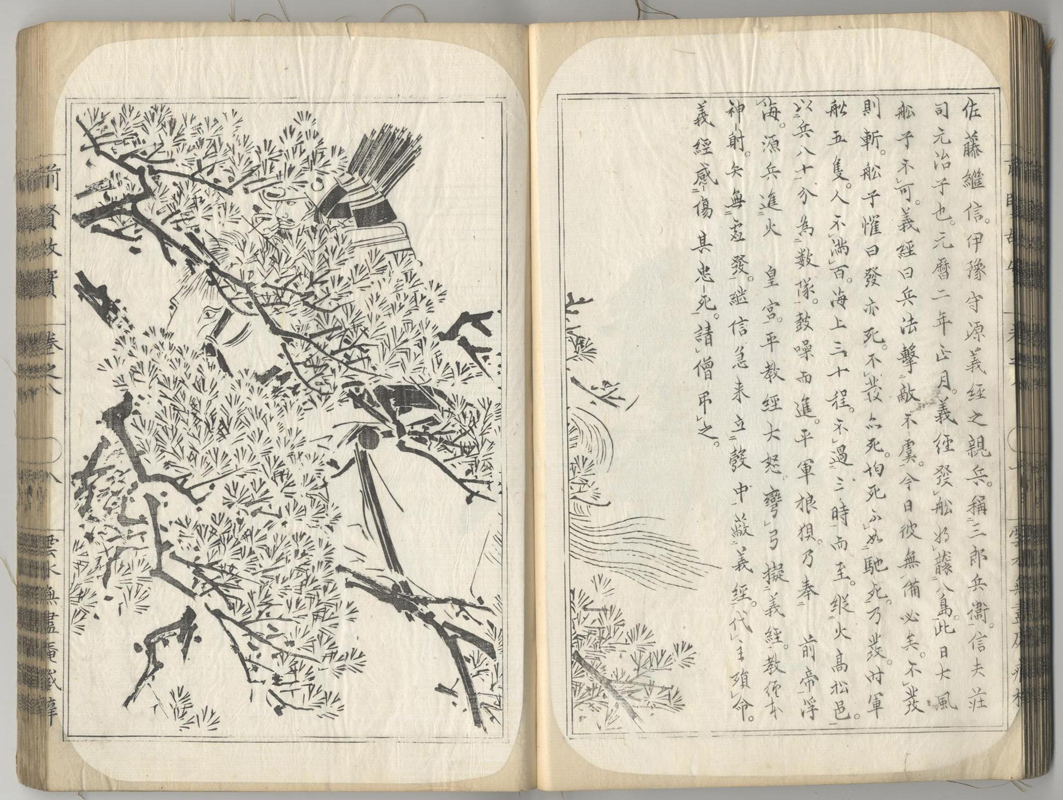 佐藤繼信。伊豫守源義經之親兵。稱三郎兵衞。信夫莊
司元治子也。元曆二年正月。義經發船於藤島。此日大風
船子不可。義經曰兵法擊敵不虞。今日彼無備必矣。不發
則斬。船子懼曰發亦死。不發亦死。均死不如馳死。乃發。時軍
船五隻。人不滿百。海上三十程。不過三時而至。縱火高松邑。
以兵八十分為數隊。鼓噪而進。平軍狼狽乃奉 前帝浮
海。源兵進火 皇宮。平教經大怒。彎弓擬義經。教經本
神射。矢無虛發。繼信急來立彀中。蔽義經。代主殞命。
義經感傷其忠死。請僧弔之。
前賢故實 卷之八
八
雲水無盡庵藏